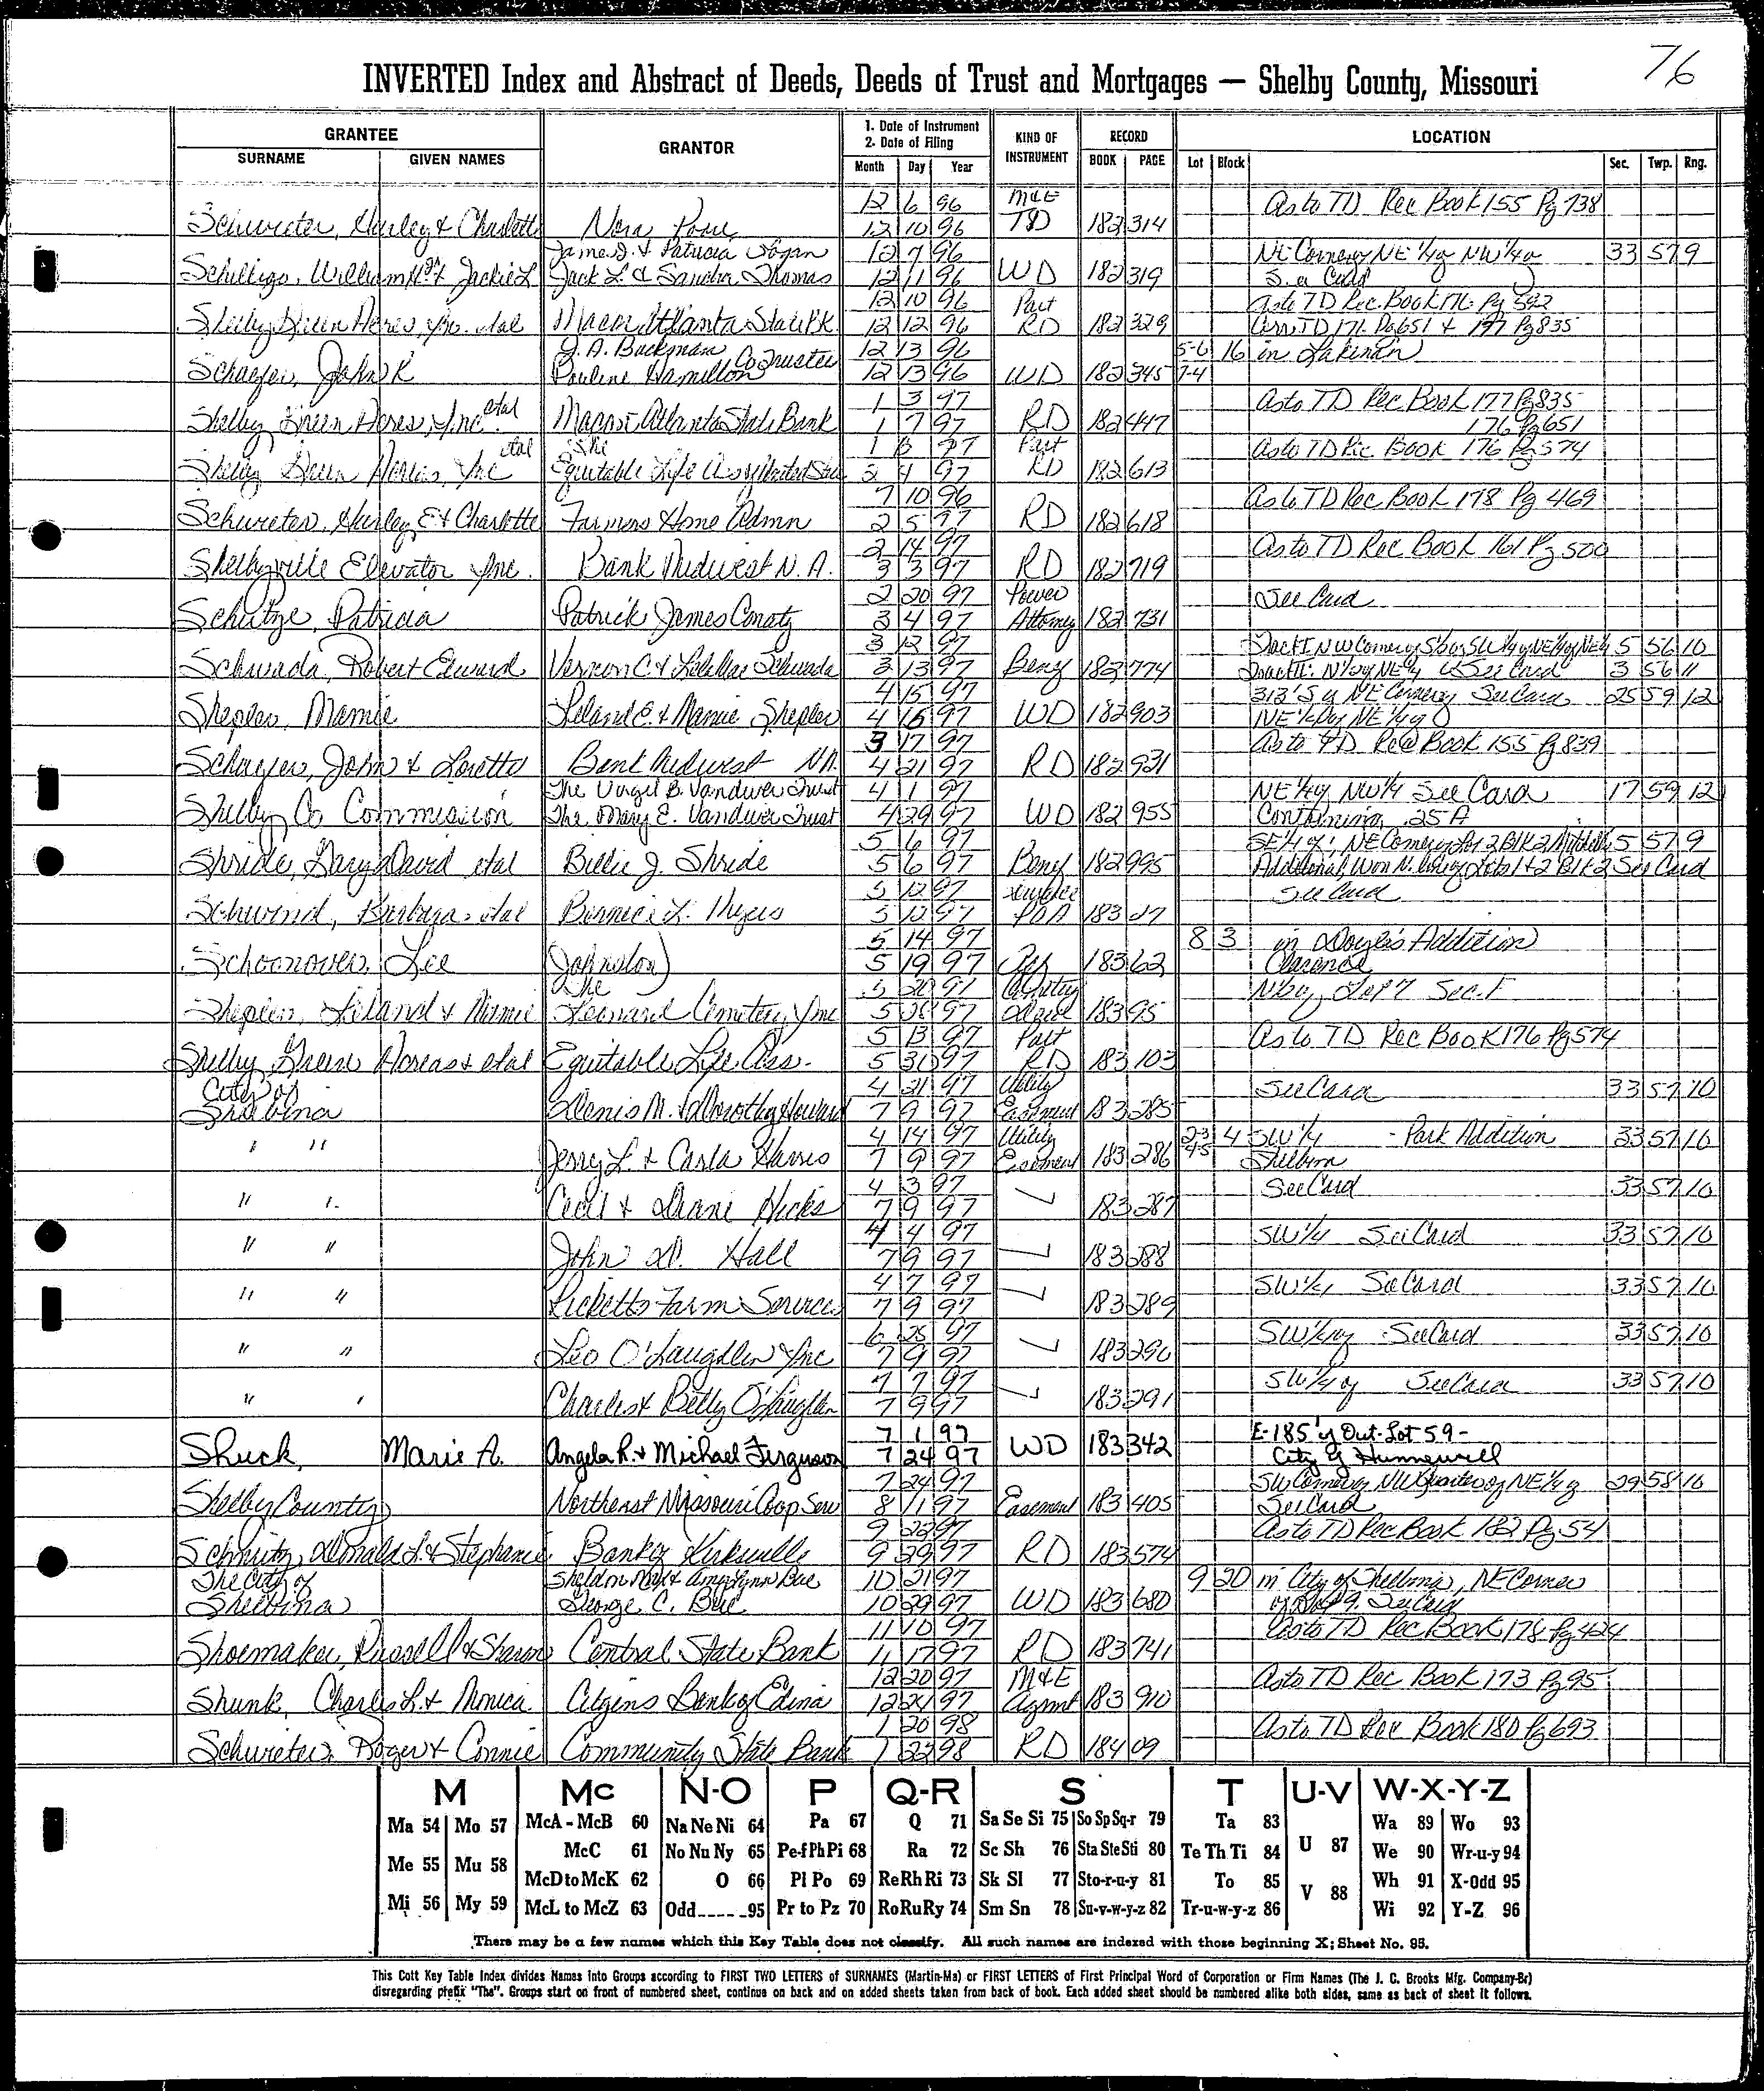 76
INVERTED Index and Abstract of Deeds, Deeds of Trust and Mortgages — Shelby County, Missouri
GRANTEE
SURNAME GIVEN NAMES
GRANTOR
1. Date of Instrument
2. Date of Filing
Month Day Year
KIND OF INSTRUMENT
RECORD
BOOK PAGE
LOCATION
Lot Block Sec. Twp. Rng.
12 6 96 M&E As to TD Rec Book 155 Pg 738
Schwieter, Harley & Charlotte Nora 12 10 96 TD 182 314
James D. & Patricia 12 7 96 NE Corner of NE 1/4 of NW 1/4 of 33 57 9
William H. & Jackie L Jack L. & Sandra Thomas 12 11 96 WD 182 319
12 10 96 Part As to TD Rec. Book 176 Pg 592
Shelby Green Acres, Inc. etal Macon Atlanta State Bk 12 12 96 RD 182 329 171 Pg 651 & 177 Pg 835
J. A. Buckman 12 13 96 5-6 16 in Lakenan
Schaefer, John K Pauline Hamilton Co Trustee 12 13 96 WD 182 345 7-4
1 3 97 As to TD Rec Book 177 Pg 835
Shelby Green Acres, Inc. etal Macon Atlanta State Bank 1 7 97 RD 182 447 176 Pg 651
etal The 1 97 Part As to TD Rec Book 176 Pg 574
Shelby Green Acres, Inc Equitable Life 2 4 97 RD 182 613
7 10 96 As to TD Rec Book 178 Pg 469
Schwieter, Harley E & Charlotte Farmers Home Admn 2 5 97 RD 182 618
2 14 97 As to TD Rec Book 161 Pg 500
Shelbyville Elevator Inc. Bank Midwest N.A. 3 3 97 RD 182 719
2 20 97 Power See Card
Schutze, Patricia Patrick James Conaty 3 4 97 Attorney 182 731
3 12 97 5 56 10
Schwada, Robert Edward Vernon C. & Lela Mae Schwada 3 13 97 Beny 182 774 See Card 3 56 11
4 15 97 313' S of NE Corner of See Card 25 59 12
Shepler, Mamie Leland E. & Mamie Shepler 4 16 97 WD 182 903 NE 1/4 of NE 1/4 of
3 17 97 As to TD Rec Book 155 Pg 839
Schaefer, John & Loretta Bank Midwest NA. 4 21 97 RD 182 931
The Virgil B. Vandiver Trust 4 1 97 NE 1/4 of NW 1/4 See Card 17 59 12
Shelby Co Commission The Mary E. Vandiver Trust 4 29 97 WD 182 955 Containing .25 A
5 6 97 5 57 9
Shride, Gary David etal Billie J. Shride 5 6 97 Beny 182 995 Lots 1 & 2 Blk 2 See Card
5 12 97 See Card
Schwind, Barbara etal Bernice L. Myers 5 12 97 POA 183 27
5 14 97 8 3 in Doyle's Addition
Schoonover, Lee (Johnston) 5 19 97 183 62 Clarence
The 5 20 97 Cemetery Lot 7 Sec. F
Shepler, Leland & Mamie Leonard Cemetery Inc 5 97 Deed 183 95
5 13 97 Part As to TD Rec Book 176 Pg 574
Shelby Green Acres & etal Equitable Life Ass. 5 97 RD 183 103
City of 4 21 97 Utility See Card 33 57 10
Shelbina Denis M. & Dorothy Howard 7 9 97 Easement 183 285
4 14 97 Utility 2-3 4 SW 1/4 - Park Addition 33 57 10
" " Jerry L. & Carla Harris 7 9 97 Easement 183 286 4-5 Shelbina
4 3 97 See Card 33 57 10
" " Cecil & Diane Hicks 7 9 97 183 287
4 4 97 SW 1/4 See Card 33 57 10
" " John D. Hall 7 9 97 183 288
4 7 97 SW 1/4 See Card 33 57 10
" " Ricketts Farm Services 7 9 97 183 289
6 25 97 SW 1/4 of See Card 33 57 10
" " Leo O'Laughlin Inc 7 9 97 183 290
7 7 97 SW 1/4 of See Card 33 57 10
" " Charles & Betty O'Laughlin 7 9 97 183 291
7 1 97 E-185' of Out-Lot 59-
Shuck, Marie A. Angela R. & Michael Ferguson 7 24 97 WD 183 342 City of Hunnewell
7 24 97 SW Corner of NW Quarter of NE 1/4 of 29 58 10
Shelby County Northeast Missouri Coop Serv 8 1 97 Easement 183 405 See Card
9 22 97 As to TD Rec Book 182 Pg 54
Schmitz, Donald L. & Stephanie Bank of Kirksville 9 29 97 RD 183 574
The City of Sheldon & Amy Lynn Bue 10 21 97 9 20 in City of Shelbina, NE Corner
Shelbina George C. Bue 10 29 97 WD 183 680 of Lot 9. See Card
11 10 97 As to TD Rec Book 178 Pg 424
Shoemaker, Russell & Sharon Central State Bank 11 17 97 RD 183 741
12 20 97 M&E As to TD Rec Book 173 Pg 95
Shunk, Charles L. & Monica Citizens Bank of Edina 12 24 97 Agmt 183 910
1 20 98 As to TD Rec Book 180 Pg 693
Schwieter, Roger & Connie Community State Bank 1 22 98 RD 184 09
M Mc N-O P Q-R S T U-V W-X-Y-Z
Ma 54 Mo 57 McA - McB 60 Na Ne Ni 64 Pa 67 Q 71 Sa Se Si 75 So Sp Sq-r 79 Ta 83 U 87 Wa 89 Wo 93
McC 61 No Nu Ny 65 Pe-f Ph Pi 68 Ra 72 Sc Sh 76 Sta Ste Sti 80 Te Th Ti 84 We 90 Wr-u-y 94
Me 55 Mu 58 McD to McK 62 O 66 Pl Po 69 Re Rh Ri 73 Sk Sl 77 Sto-r-u-y 81 To 85 V 88 Wh 91 X-Odd 95
Mi 56 My 59 McL to McZ 63 Odd-----95 Pr to Pz 70 Ro Ru Ry 74 Sm Sn 78 Su-v-w-y-z 82 Tr-u-w-y-z 86 Wi 92 Y-Z 96
There may be a few names which this Key Table does not classify. All such names are indexed with those beginning X; Sheet No. 95.
This Cott Key Table Index divides Names into Groups according to FIRST TWO LETTERS of SURNAMES (Martin-Ma) or FIRST LETTERS of First Principal Word of Corporation or Firm Names (The J. C. Brooks Mfg. Company-Br)
disregarding prefix "The". Groups start on front of numbered sheet, continue on back and on added sheets taken from back of book. Each added sheet should be numbered alike both sides, same as back of sheet it follows.